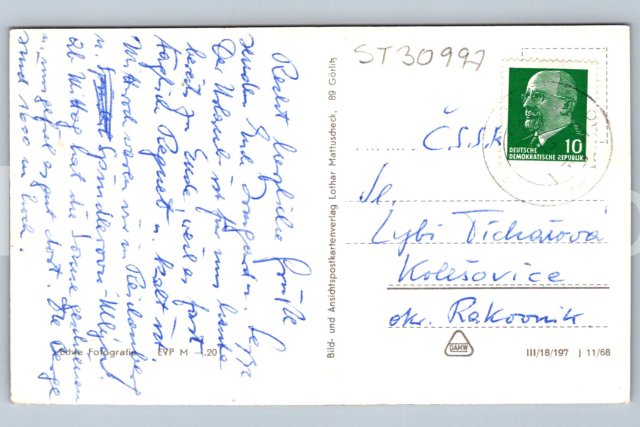 Recht herzliche Grüße
senden Euch Irmgard u. Seppl
Der Urlaub ist für uns heute
bereits zu Ende, weil es fast
täglich Regnet u. kalt ist
Mittwoch waren wir in Reichenberg
u. Spindlerov-Mlýn
Ab Mittag hat die Sonne geschienen
u. uns gefiel es gut dort. Die Berge
sind 1600 m hoch.
Echte Fotografie EVP M -.20
Bild- und Ansichtspostkartenverlag Lothar Mattuscheck, 89 Görlitz
ST30997
10
DEUTSCHE
DEMOKRATISCHE REPUBLIK
Č.S.S.R.
Sl.
Lybi Tichařová
Kolešovice
okr. Rakovník.
DAHW
III/18/197 J 11/68